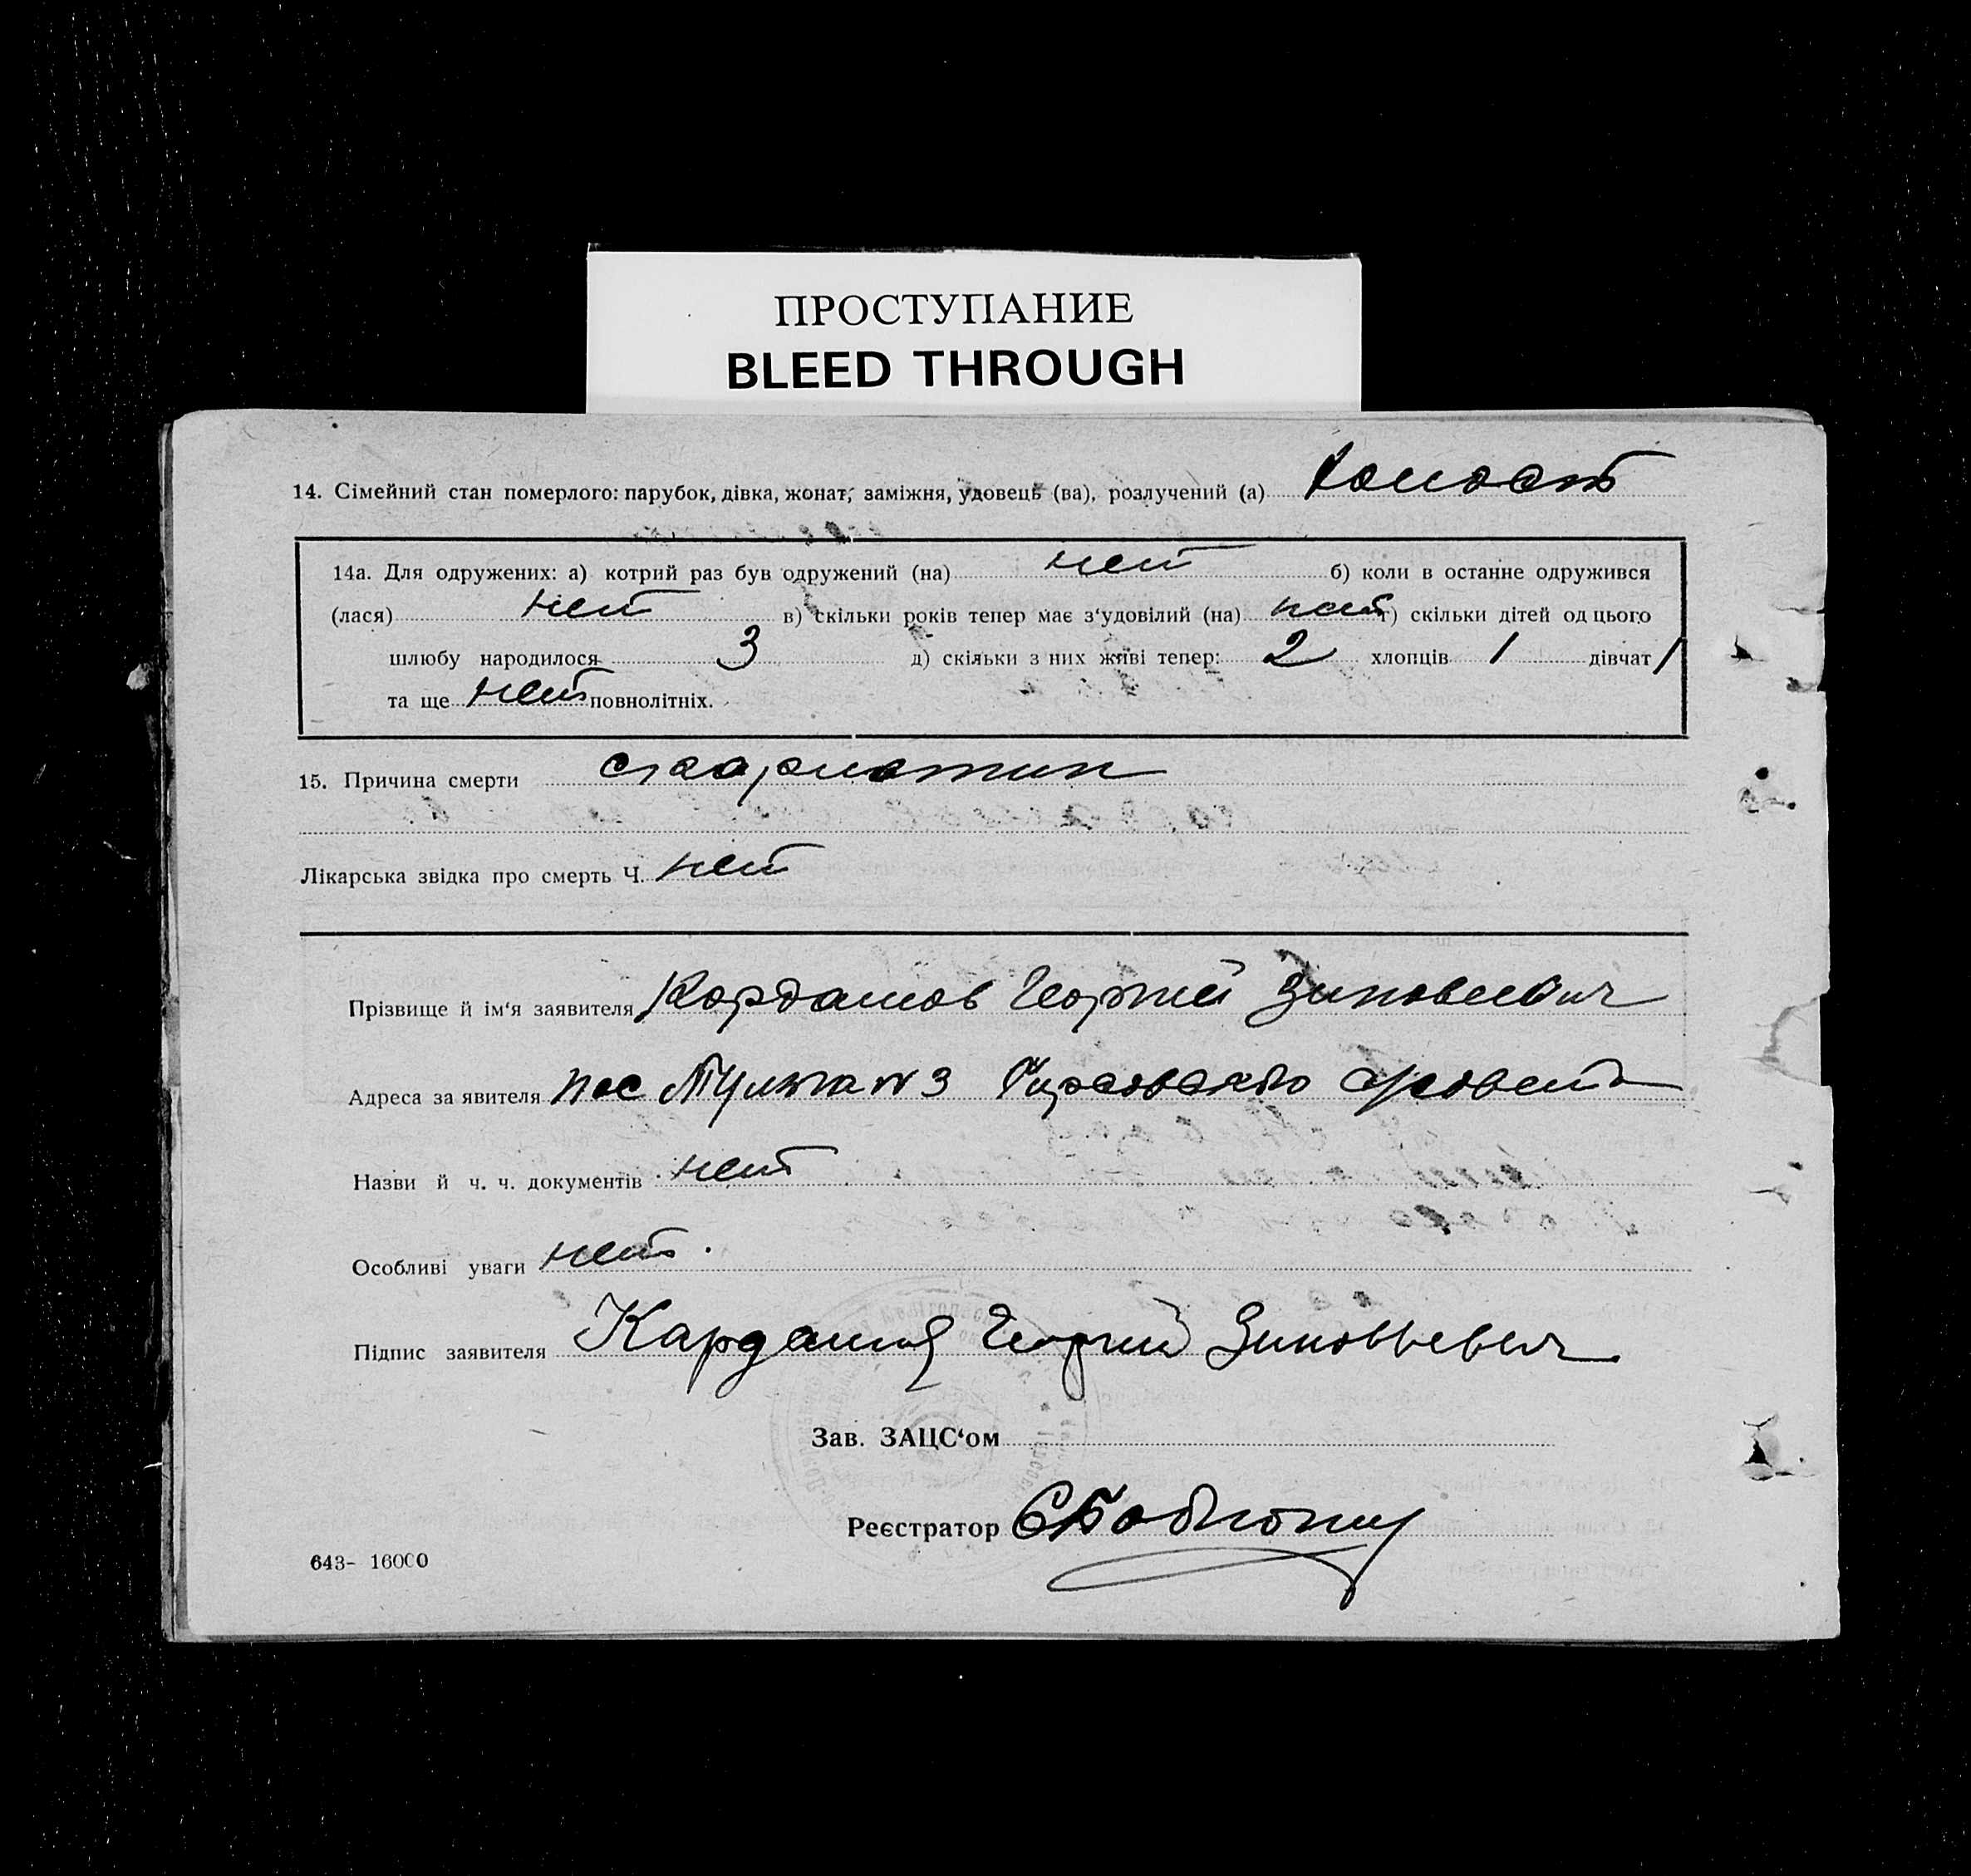 ПРОСТУПАНИЕ
BLEED THROUGH
14. Сімейний стан померлого: парубок, дівка, жонат, заміжня, удовець (ва), розлучений (а) холост
14а. Для одружених: а) котрий раз був одружений (на) нет б) коли в останне одружився
(лася) нет в) скільки років тепер має з‘удовілий (на) нет г) скільки дітей од цього
шлюбу народилося 3 д) скільки з них живі тепер: 2 хлопців 1 дівчат 1
та ще нет повнолітніх.
15. Причина смерти скарлотин
Лікарська звідка про смерть Ч. нет
Прізвище й ім‘я заявителя Кордашов Георгий Зиновеевич
Адреса за явителя пос №3
Назви й ч. ч. документів нет
Особливі уваги нет.
Підпис заявителя Кардашов Георгий Зиновьевич
Зав. ЗАЦС‘ом
Реєстратор
643- 16000